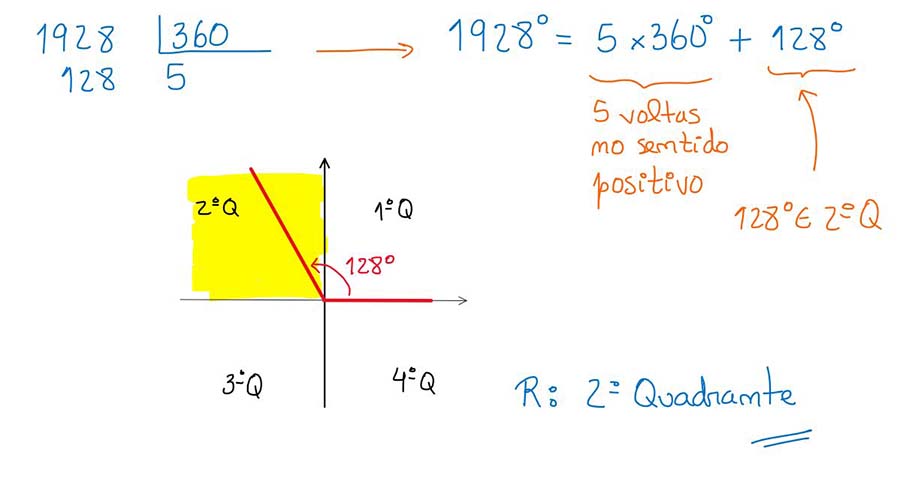 1928 360
128 5
1928° = 5 × 360° + 128°
5 voltas
no sentido
positivo
128° ∈ 2º Q
2º Q
1º Q
128°
3º Q
4º Q
R: 2º Quadrante